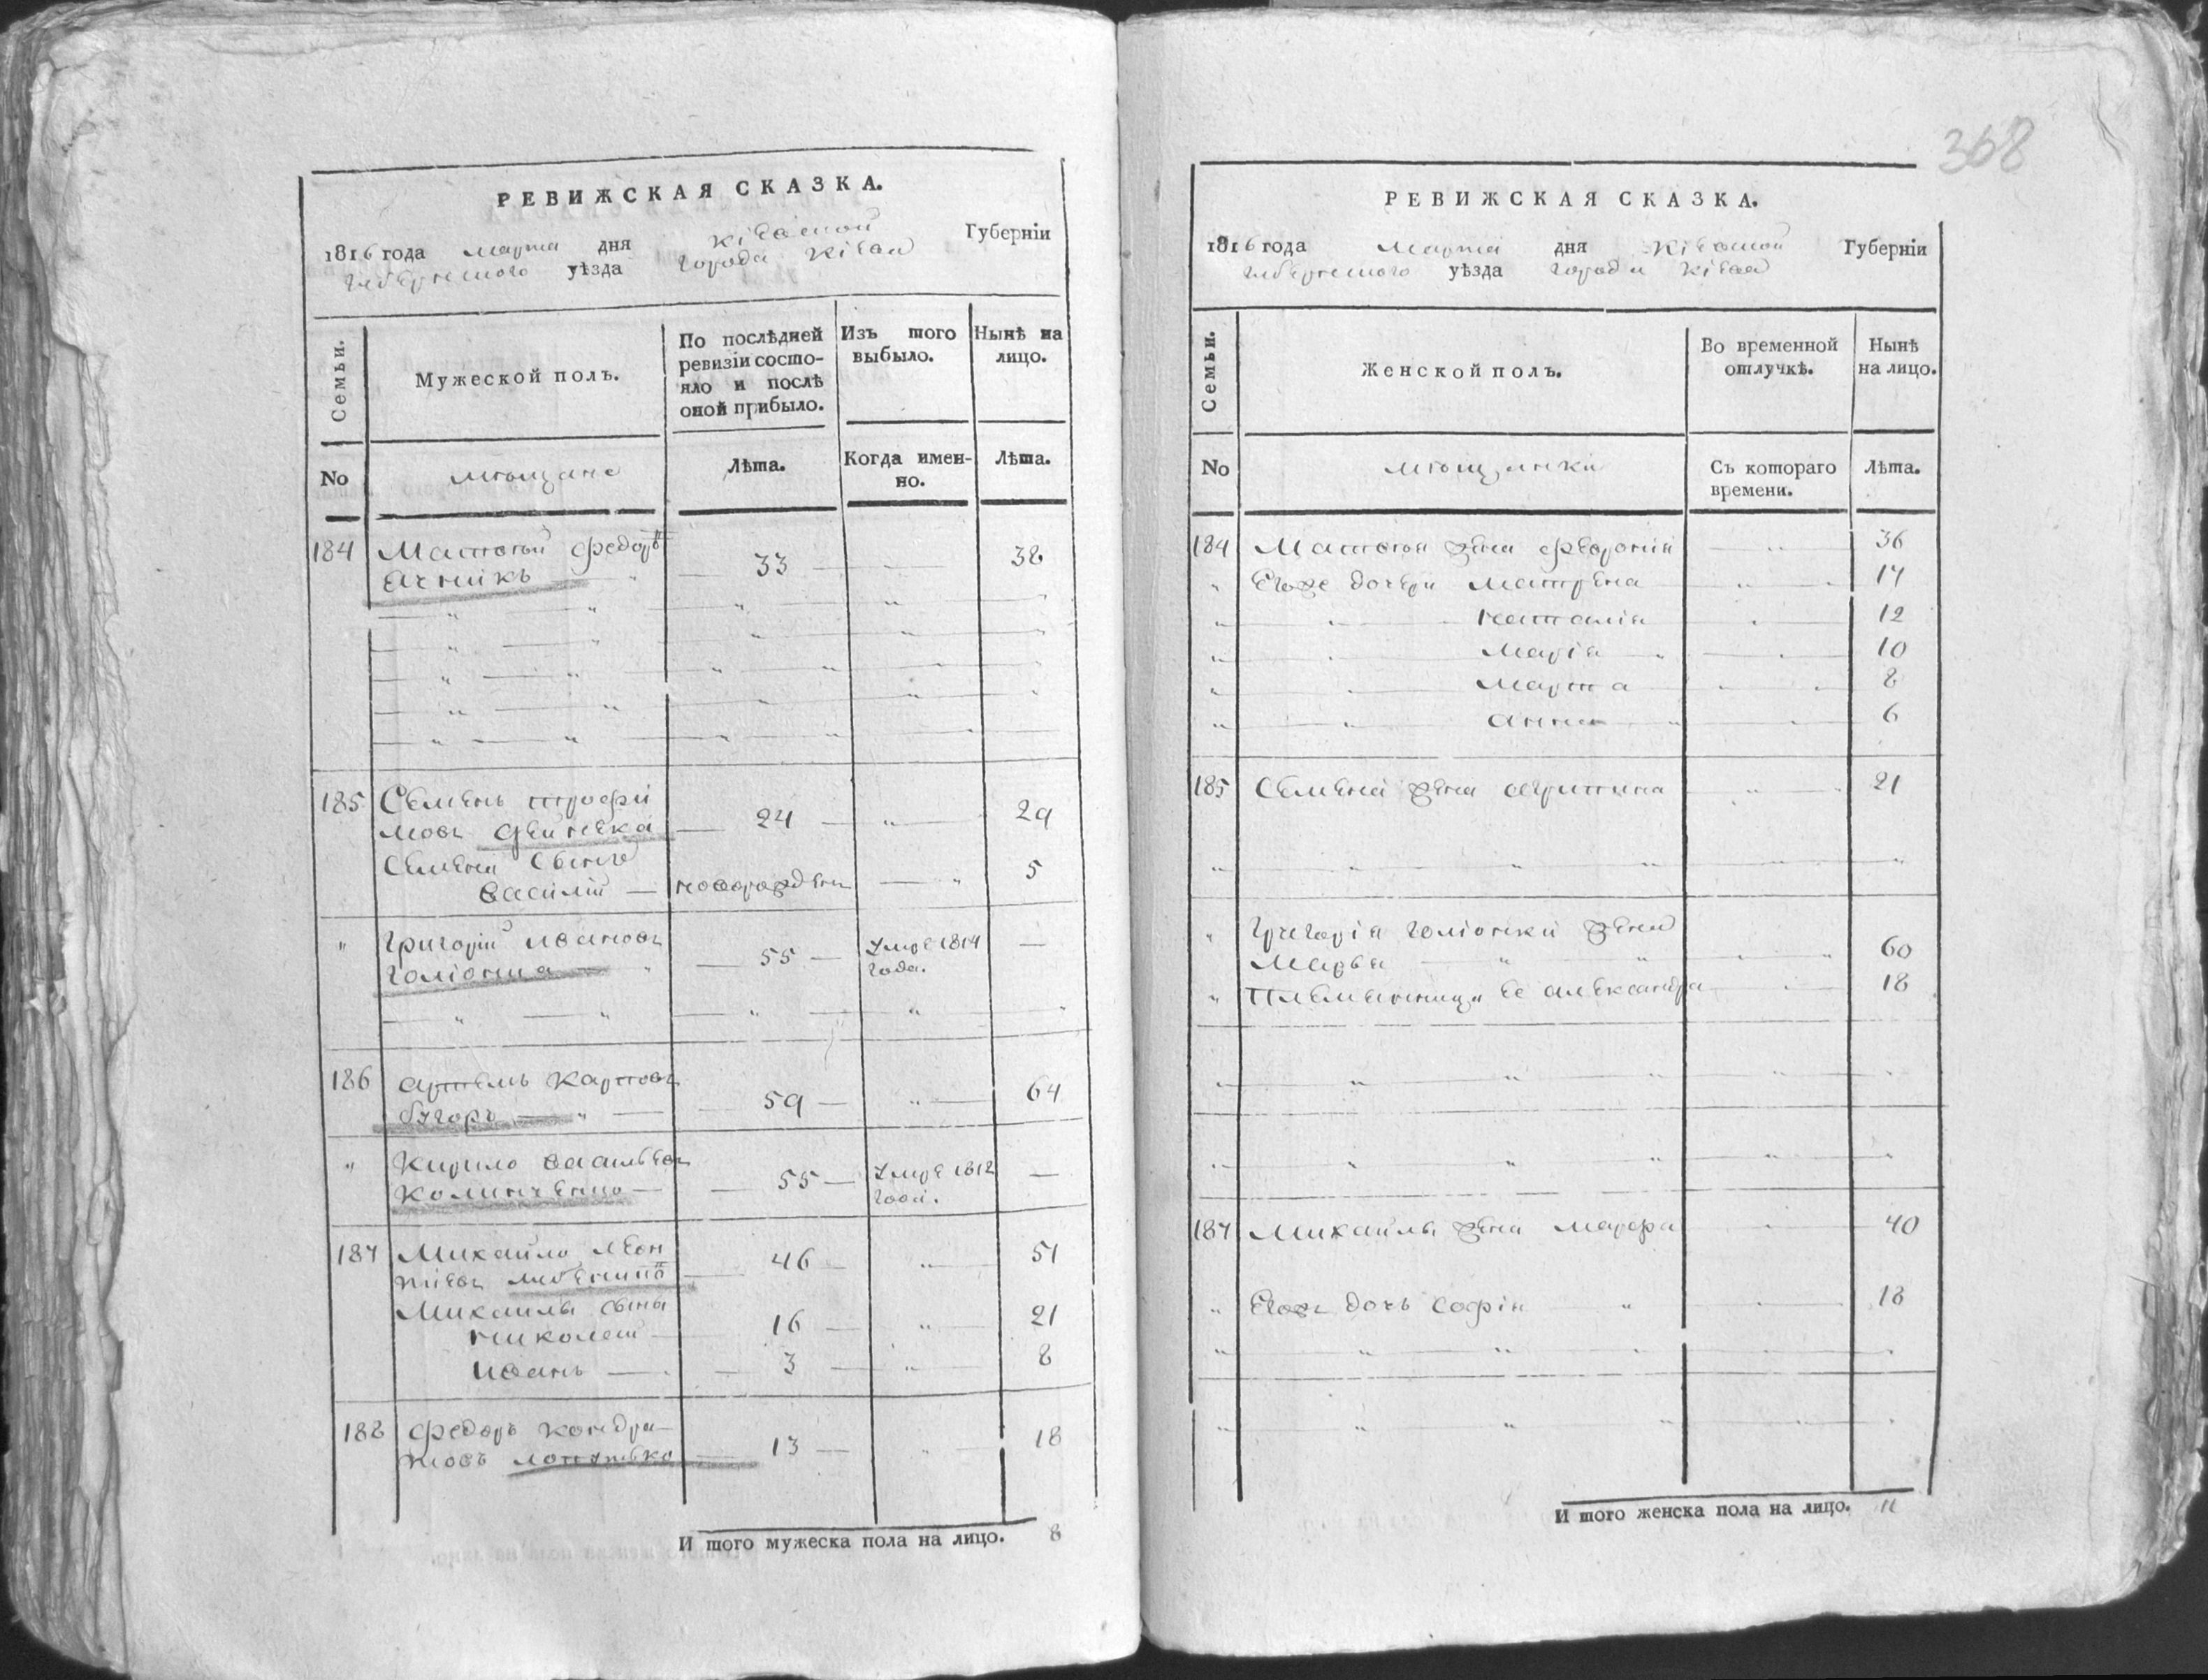 РЕВИЖСКАЯ СКАЗКА.
1816 года марта дня Кіевской Губерніи
Губернского уѣзда города Кіева
Семьи.
Мужеской полъ.
По послѣдней ревизіи состо-
яло и послѣ
оной прибыло.
Изъ того
выбыло.
Нынѣ на
лицо.
No
мѣщане
Лѣта.
Когда имен-
но.
Лѣта.
184 Матвѣй Федоровъ
Ячникъ 33 38
185 Семенъ Трофи
мовъ Дейнека 24 29
Семена сынъ
Василій новорожденъ 5
Григорій Ивановъ
Голіонка 55 умре 1814
года.
186 Артемъ Карповъ
Бугоръ 59 64
Кирило Васильевъ
Калинченко 55 умре 1812
года.
187 Михайло Леон
тіевъ 46 51
Михайлы сына
Николай 16 21
Иванъ 3 8
188 Федоръ Кондра-
товъ Лопатька 13 18
И того мужеска пола на лицо. 8
368
РЕВИЖСКАЯ СКАЗКА.
1816 года Марта дня Кіевской Губерніи
Губернского уѣзда города Кіева
Семьи.
Женской полъ.
Во временной
отлучкѣ.
Нынѣ
на лицо.
No
мѣщанки
Съ котораго
времени.
Лѣта.
184 Матвѣя жена Февронія 36
Егоже дочери Матрена 14
Наталія 12
Марія 10
Марта 8
Анна 6
185 Семена жена Агрипина 21
Григорія Голіонки жена
Марья 60
Племянница ее Александра 18
187 Михайлы жена Марфа 40
Егожъ дочь Софія 18
И того женска пола на лицо. 11